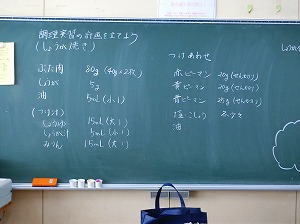 調理実習の計画を立てよう
(しょうが焼き)
ぶた肉 80g (40g×2枚)
しょうが 5g
油 5mL (小1)
(つけ汁)
しょうゆ 15mL (大1)
しょうが汁 5mL (小1)
みりん 15mL (大1)
つけあわせ
赤ピーマン 20g (せん切り)
青ピーマン 20g (せん切り)
黄ピーマン 20g (せん切り)
塩・こしょう 各少々
油